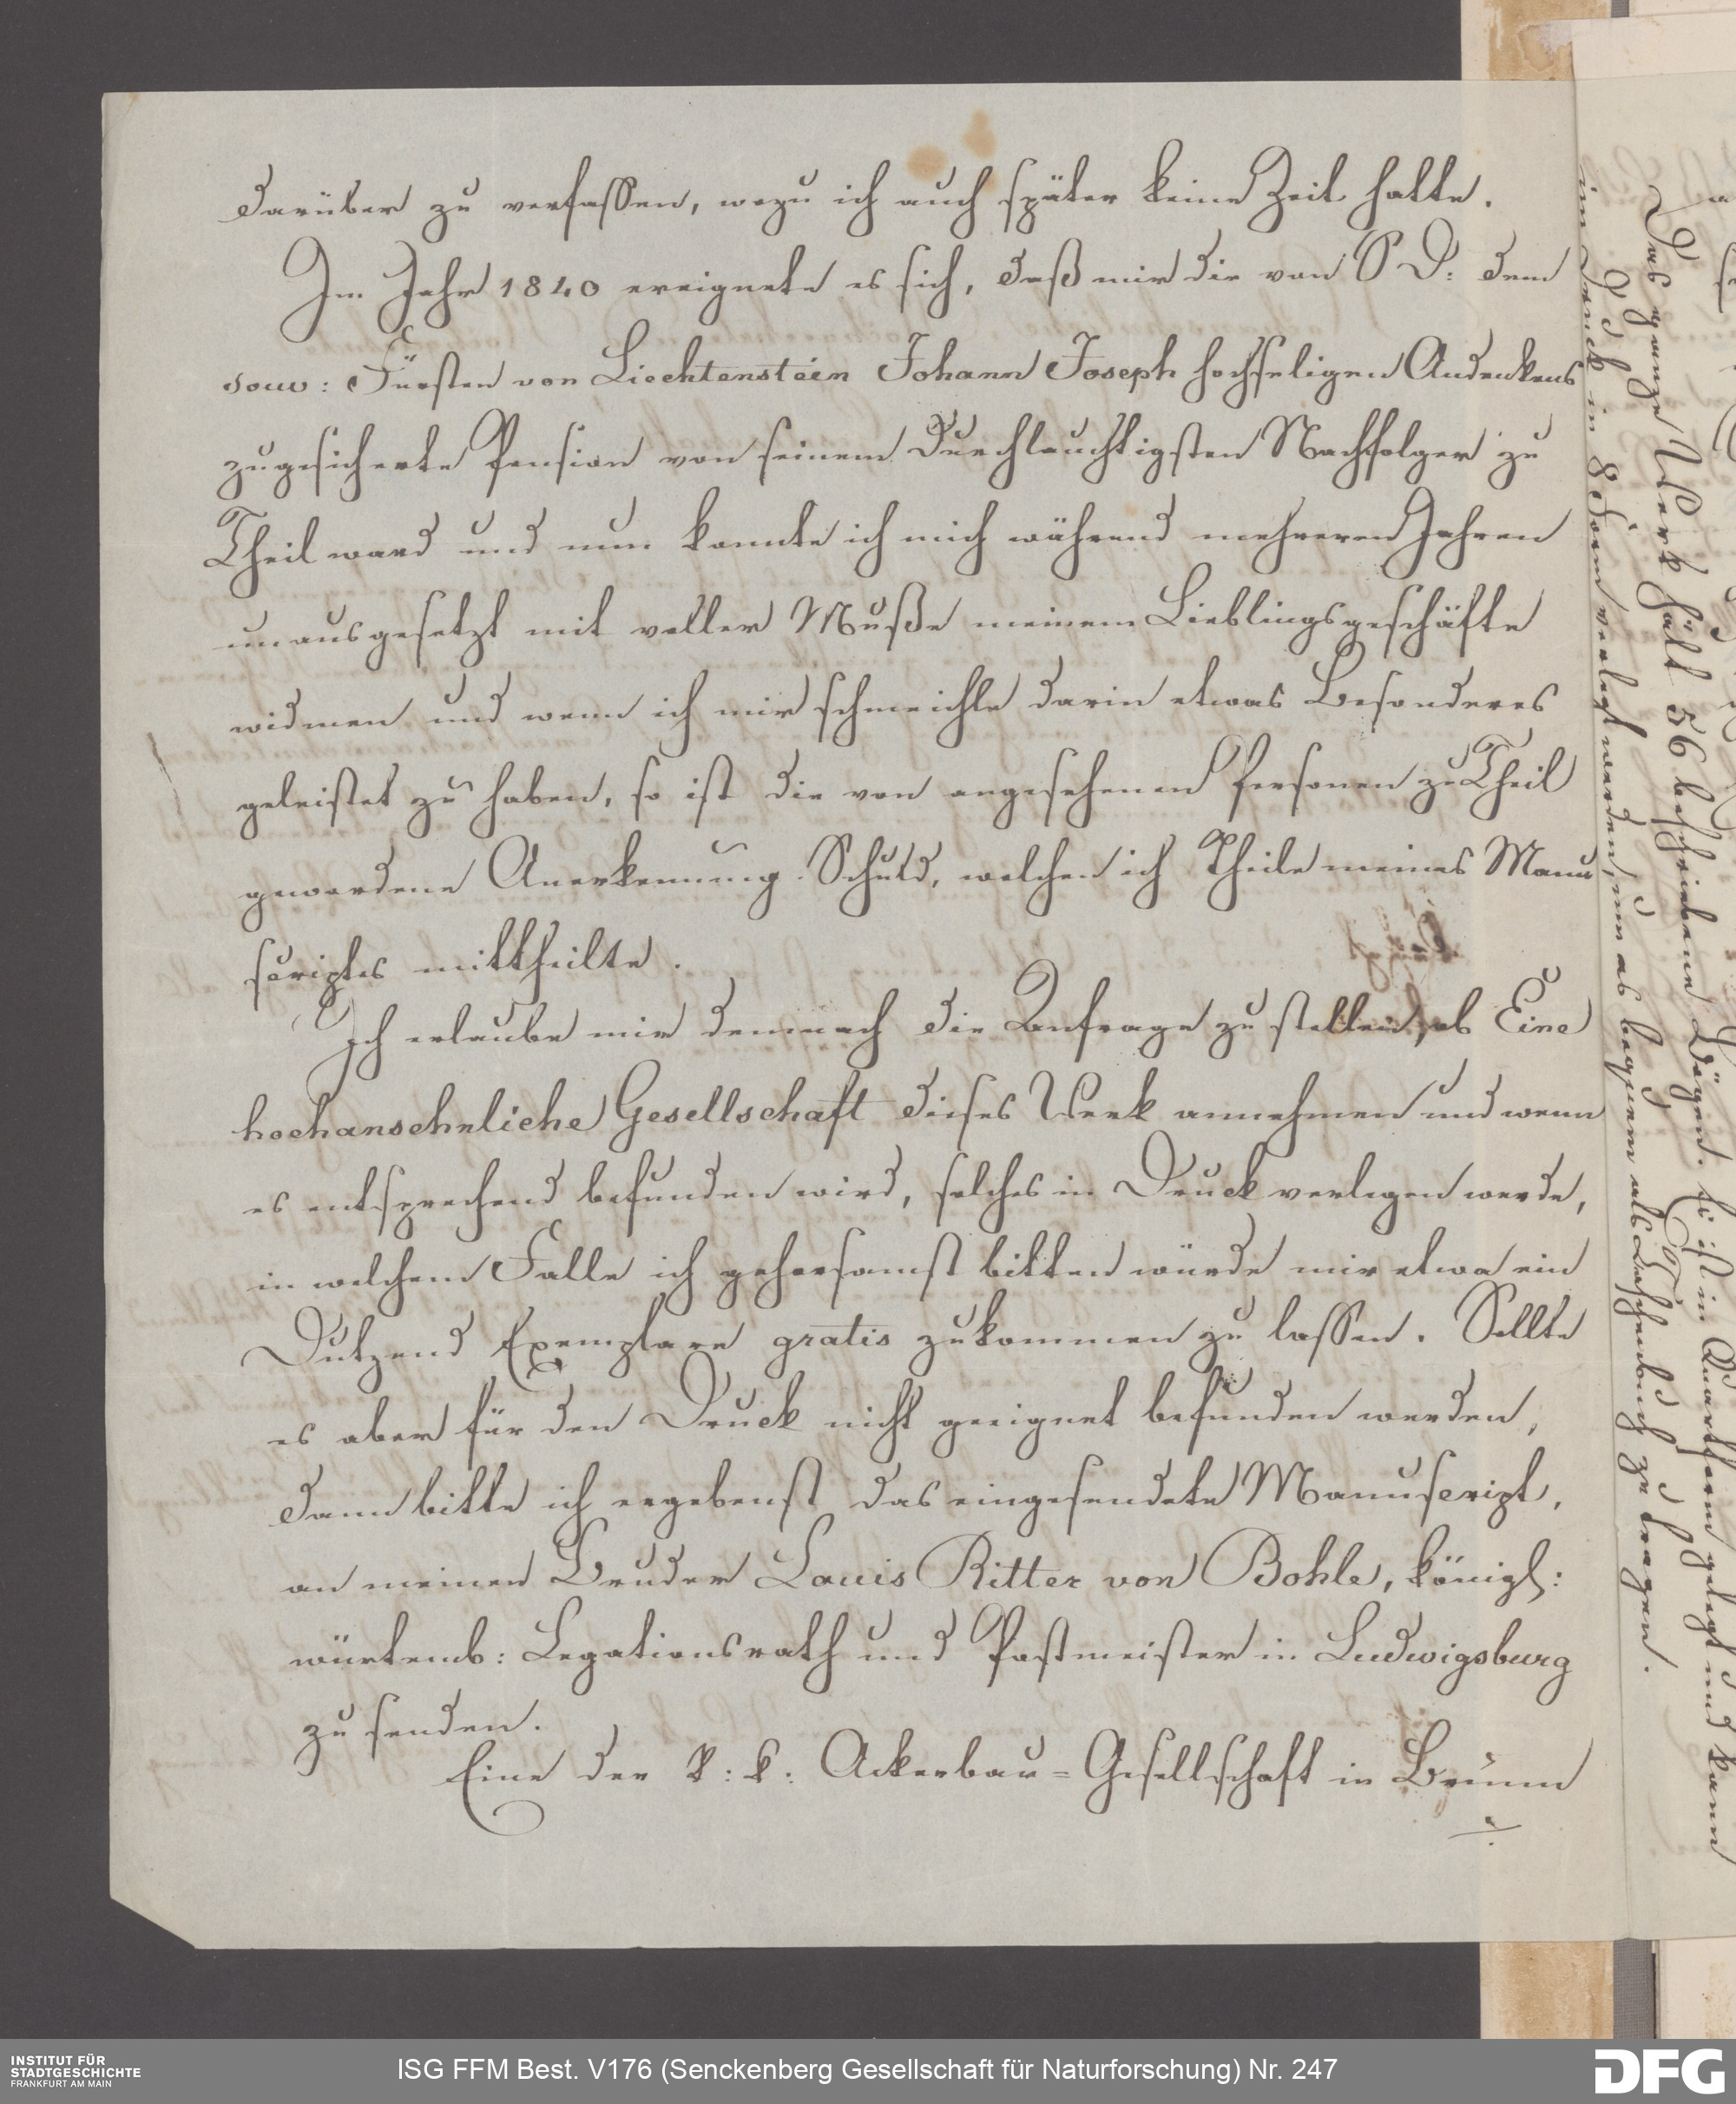 darüber zu verfassen, wozu ich auch später keine Zeit hatte.
Im Jahr 1840 ereignete es sich, daß mir die von S D: dem
souv: Fürsten von Liechtenstein Johann Joseph hochseligen Andenkens
zugesicherte Pension von seinem Durchlauchtigsten Nachfolger zu
Theil ward und nun konnte ich mich während mehreren Jahren
unausgesetzt mit voller Muße meinem Lieblingsgeschäfte
widmen und wenn ich mir schmeichle darin etwas Besonderes
geleistet zu haben, so ist die von angesehenen Personen zu Theil
gewordene Anerkennung Schuld, welchen ich Theile meines Manu
scriptes mittheilte.
Ich erlaube mir demnach die Anfrage zu stellen, ob Eine
hochansehnliche Gesellschaft dieses Werk annehmen und wenn
es entsprechend befunden wird, solches in Druck verlegen werde,
in welchem Falle ich gehorsamst bitten würde mir etwa ein
Dutzend Exemplare gratis zukommen zu lassen. Sollte
es aber für den Druck nicht geeignet befunden werden,
dann bitte ich ergebenst das eingesendete Manuscript,
an meinen Bruder Louis Ritter von Bohle, königl:
würtemb: Legationsrath und Postmeister in Ludwigsburg
zu senden.
Eine der k: k: Ackerbau=Gesellschaft in Brünn
./.
Das ganze Werk hält 56 beschriebene Bögen. Es ist in Quartform gelegt und kann
im Druck in 8 Form verlegt werden, um es bequem als Taschenbuch zu tragen.
INSTITUT FÜR
STADTGESCHICHTE
FRANKFURT AM MAIN
ISG FFM Best. V176 (Senckenberg Gesellschaft für Naturforschung) Nr. 247
DFG